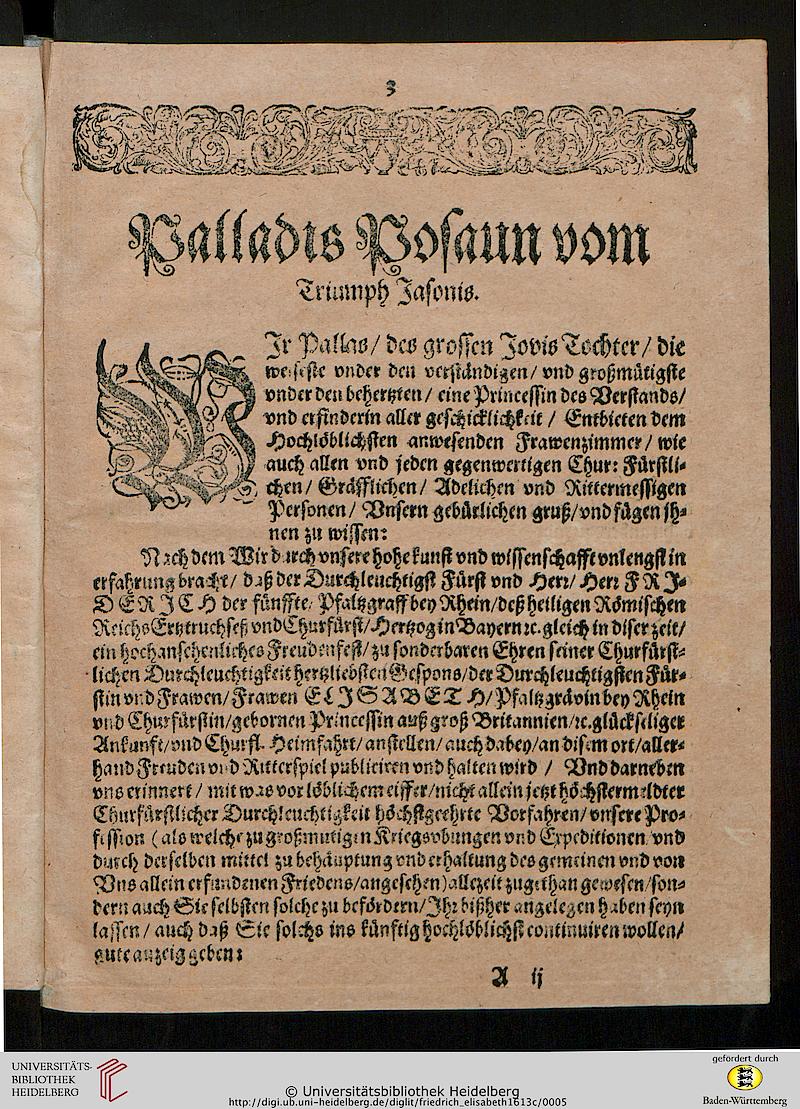 3
Palladis Posaun vom
Triumph Jasonis.
WJr Pallas/ des grossen Jovis Tochter/ die
weiseste vnder den verständigen/ vnd großmütigste
vnder den behertzten/ eine Princessin des Verstands/
vnd erfinderin aller geschicklichkeit / Entbieten dem
Hochlöblichsten anwesenden Frawenzimmer/ wie
auch allen vnd jeden gegenwertigen Chur: Fürstli-
chen/ Gräfflichen/ Adelichen vnd Rittermessigen
Personen/ Vnsern gebürlichen gruß/ vnd fügen jh-
nen zu wissen:
Nach dem Wir durch vnsere hohe kunst vnd wissenschafft vnlengst in
erfahrung bracht/ daß der Durchleuchtigst Fürst vnd Herr/ Herr F R J-
D E R J C H der fünffte/ Pfaltzgraff bey Rhein/ deß heiligen Römischen
Reichs Ertztruchseß vnd Churfürst/ Hertzog in Bayern ꝛc. gleich in diser zeit/
ein hochansehenliches Freudenfest/ zu sonderbaren Ehren seiner Churfürst-
lichen Durchleuchtigkeit hertzliebsten Gespons/ der Durchleuchtigsten Für-
stin vnd Frawen/ Frawen E L J S A B E T H/ Pfaltzgrävin bey Rhein
vnd Churfürstin/ gebornen Princessin auß groß Britannien/ ꝛc. glückseliger
Ankunft/ vnd Churfl. Heimfahrt/ anstellen/ auch dabey/ an disem ort/ aller-
hand Freuden vnd Ritterspiel publiciren vnd halten wird / Vnd darneben
vns erinnert / mit was vor löblichem eiffer/ nicht allein jetzt höchstermeldter
Churfürstlicher Durchleuchtigkeit höchstgeehrte Vorfahren/ vnsere Pro-
fession ( als welche zu großmutigen Kriegsvbungen vnd Expeditionen/ vnd
durch derselben mittel zu behäuptung vnd erhaltung des gemeinen vnd von
Vns allein erfundenen Friedens/ angesehen) allezeit zugethan gewesen/ son-
dern auch Sie selbsten solche zu befördern/ Jhr bißher angelegen haben seyn
lassen / auch daß Sie solchs ins künftig hochlöblichst continuiren wollen/
gute anzeig geben:
A ij
UNIVERSITÄTS-
BIBLIOTHEK
HEIDELBERG
© Universitätsbibliothek Heidelberg
http://digi.ub.uni-heidelberg.de/diglit/friedrich_elisabeth1613c/0005
gefördert durch
Baden-Württemberg